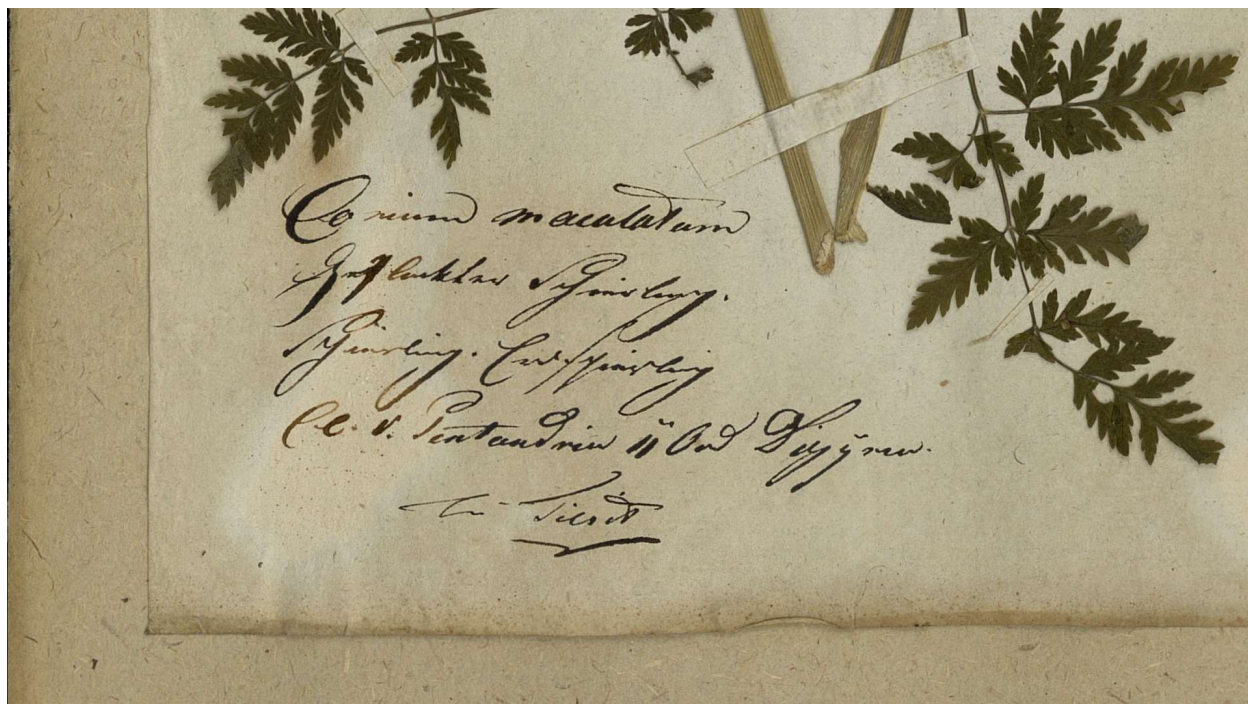 Conium maculatum
Gefleckter Schierling.
Schierling. Erdschierling
Cl. V. Pentandria II Ord Digÿnia.
Tilsit